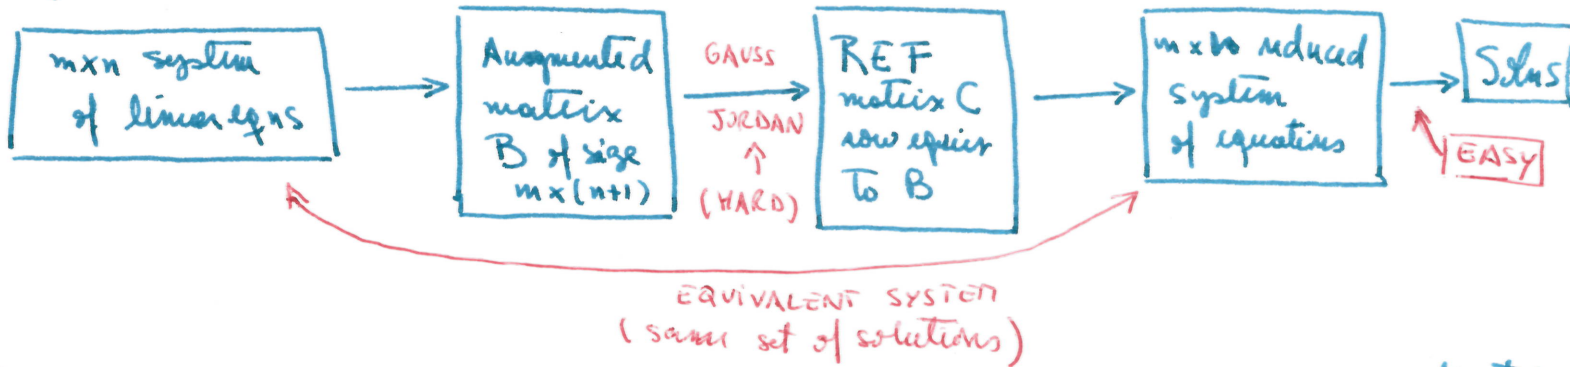 m×n system
of linear eqns
Augmented
matrix
B of size
m×(n+1)
GAUSS
JORDAN
↑
(HARD)
REF
matrix C
row equiv
to B
reduced
system
of equations
Solns
EASY
EQUIVALENT SYSTEM
(same set of solutions)